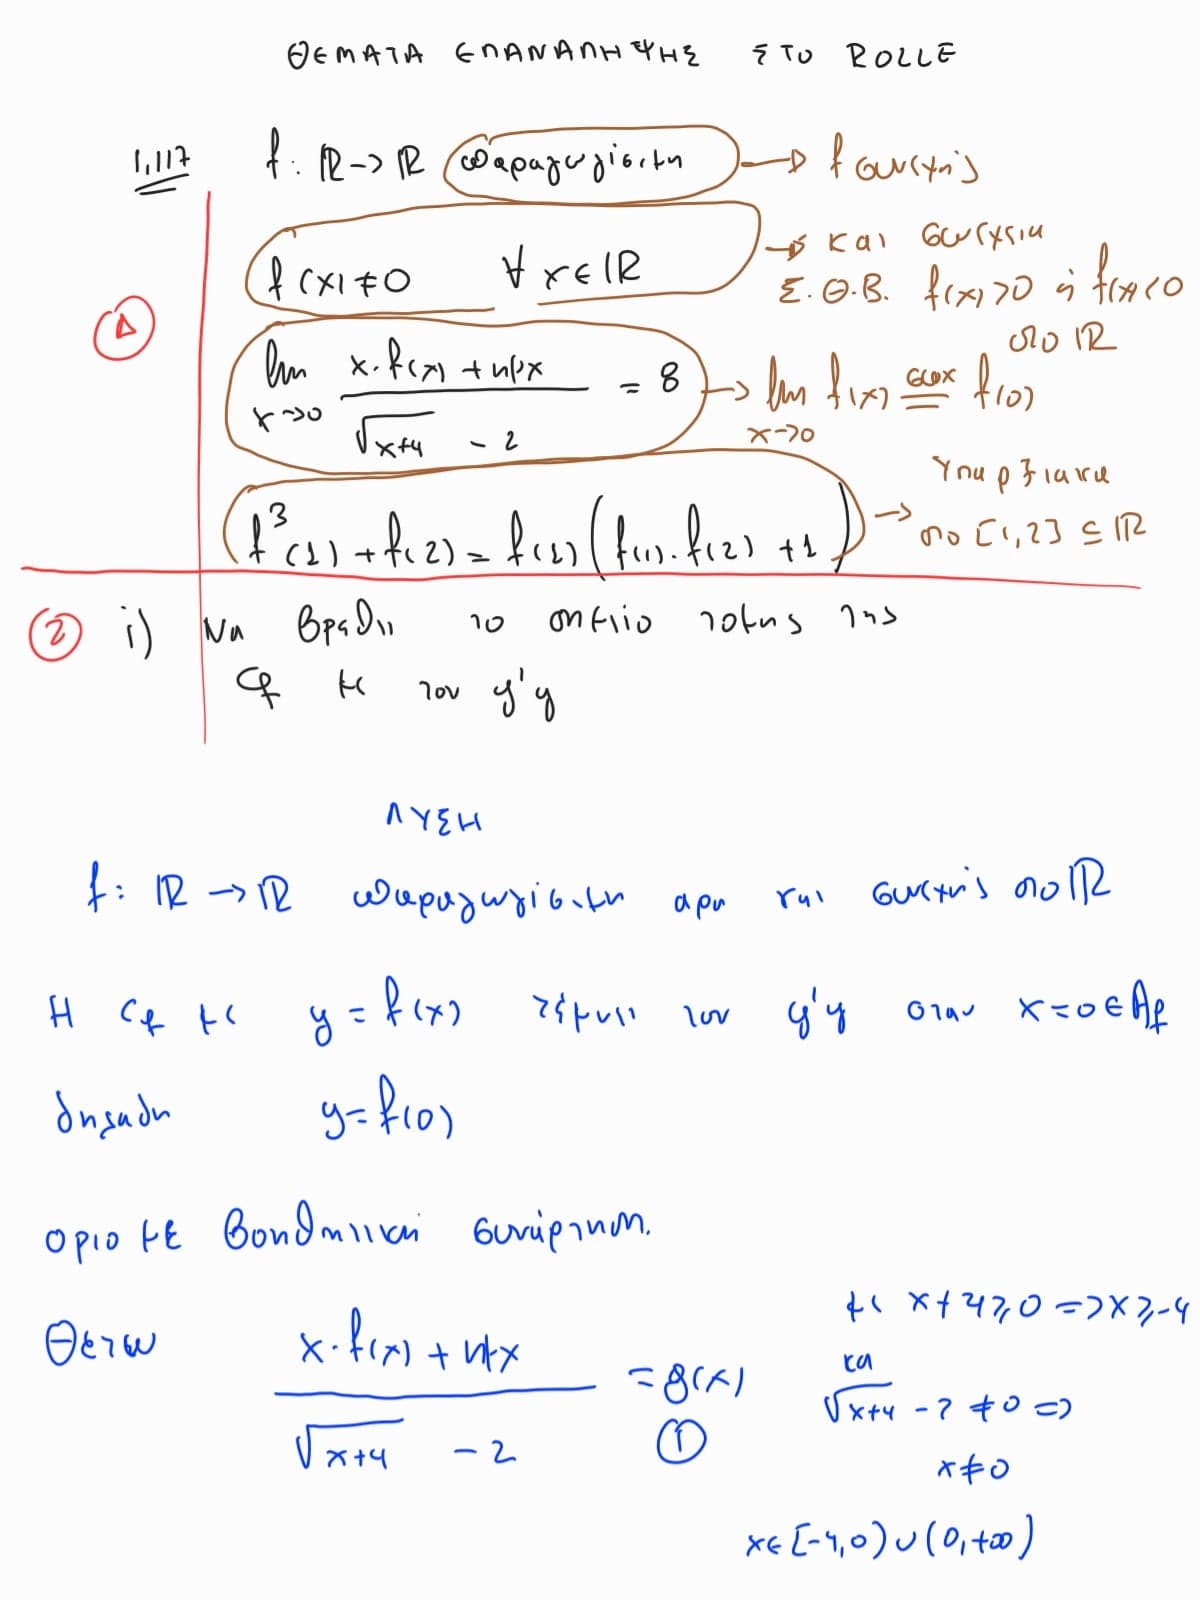 ΘΕΜΑΤΑ ΕΠΑΝΑΛΗΨΗΣ ΣΤΟ ROLLE
1,117 f: ℝ -> ℝ παραγωγίσιμη -> f συνεχής
f(x) ≠ 0 ∀ x ∈ ℝ -> και συνεχεια
Σ.Θ.Β. f(x) > 0 ή f(x) < 0
στο ℝ
Δ
lim x->0 (x·f(x) + ημx) / (√(x+4) - 2) = 8 -> lim x->0 f(x) συνεχ = f(0)
f³(1) + f(2) = f(1)(f(1)·f(2) + 1) -> Υπαρξιακα
στο [1,2] ⊆ ℝ
2 i) Να βρεθει το σημειο τομης της
Cf με τον y'y
ΛΥΣΗ
f: ℝ -> ℝ παραγωγίσιμη αρα και συνεχής στο ℝ
Η Cf με y = f(x) τέμνει τον y'y οταν x=0 ∈ Af
δηλαδη y = f(0)
οριο με βοηθητική συνάρτηση.
Θετω (x·f(x) + ημx) / (√(x+4) - 2) = g(x) 1
με x+4 ≥ 0 => x ≥ -4
και
√(x+4) - 2 ≠ 0 =>
x ≠ 0
x ∈ [-4,0) ∪ (0,+∞)